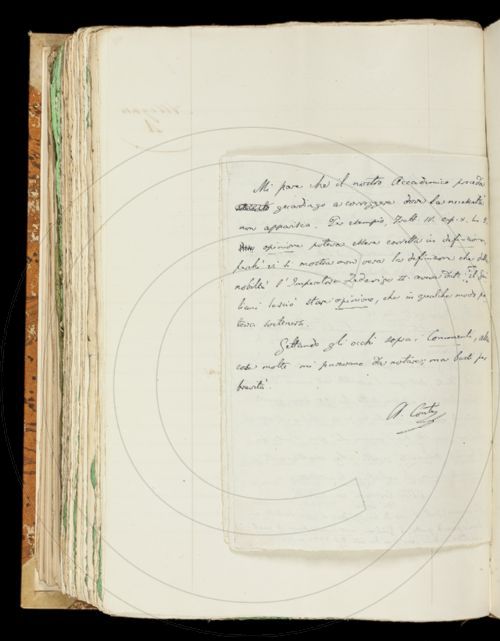 Mi pare che il nostro Accademico proceda
guardingo a correggere dove la necessità
non apparisca. Per esempio, Tratt. IV. cap. X. L. 2.
opinione poteva essere corretto in definizione,
perchè ivi si mostra non vera la definizione che della
nobiltà l'Imperatore Federigo II. aveva data: il
lasciò stare opinione, che in qualche modo po
teva sostenersi.
Gettando gli occhi sopra i Comenti, altre
cose molte mi parevano da notare; ma basti per
brevità.
A.